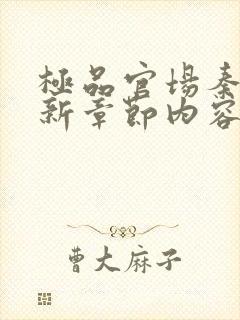 極品官場秦
新章節內容
曹大麻子